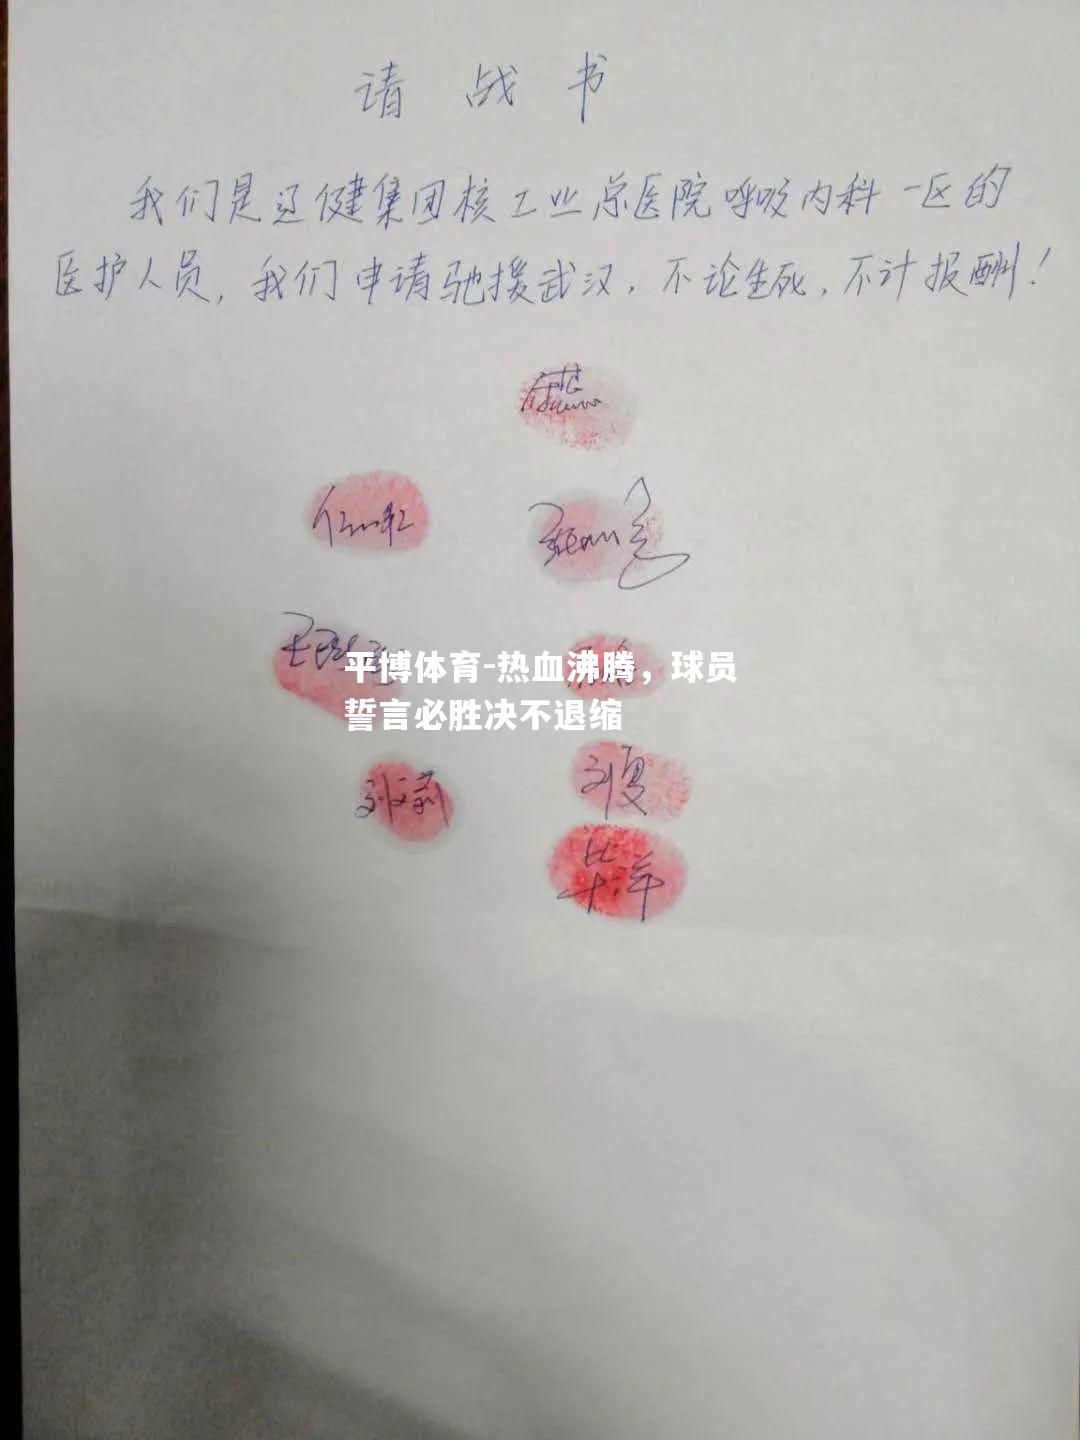 请战书
我们是辽健集团核工业总医院呼吸内科一区的
医护人员，我们申请驰援武汉，不论生死，不计报酬！
平博体育-热血沸腾，球员
誓言必胜决不退缩
刘文莉
刘夏
毕洋